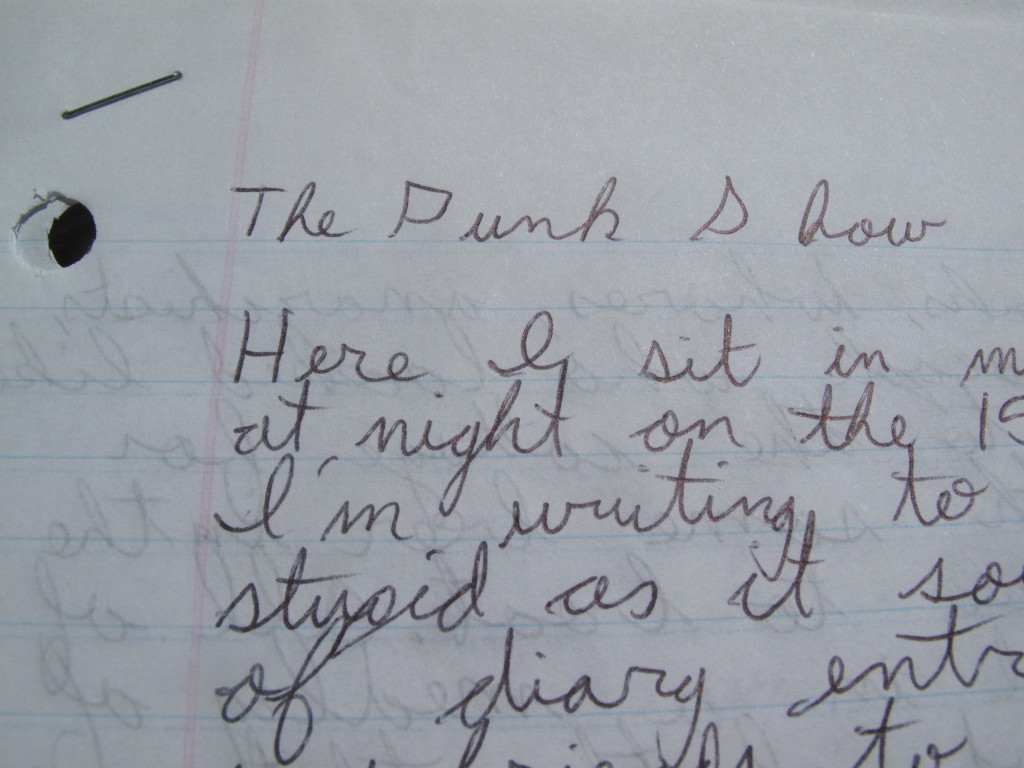 The Punk Show
Here I sit in m
at night on the 19
I'm writing to
stupid as it so
of diary entr
friends to